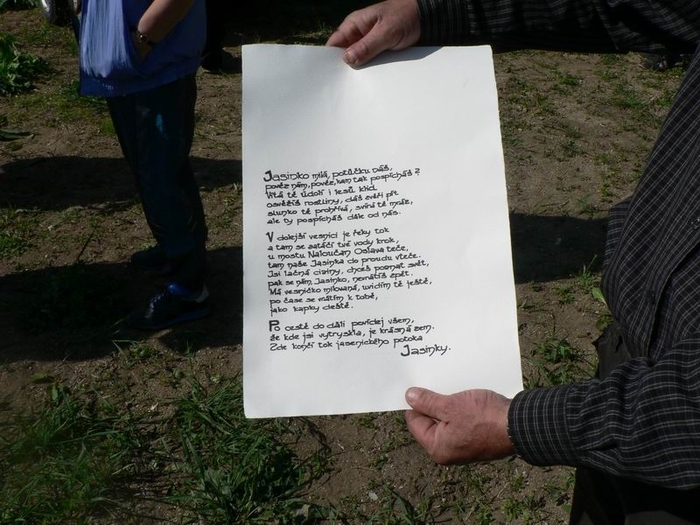 Jasinko milá, potůčku náš,
pověz nám, pověz, kam tak pospícháš?
Vítá tě údolí i lesů klid,
osvěžíš rostliny, dáš zvěři pít
slunko tě prohřívá, svírá tě mráz,
ale ty pospícháš dále od nás.
V dolejší vesnici je řeky tok
a tam se stáčí tvé vody krok,
u mostu Naloučan Oslava teče,
tam naše Jasinka do proudu vteče.
Jsi lačná ciziny, chceš poznat svět,
pak se nám, Jasinko, nevrátíš zpět.
Má vesničko milovaná, uvidím tě ještě,
po čase se vrátím k tobě,
jako kapky deště.
Po cestě do dáli povídej všem,
že kde jsi vytryskla, je krásná zem.
Zde končí tok jasenického potoka
Jasinky.